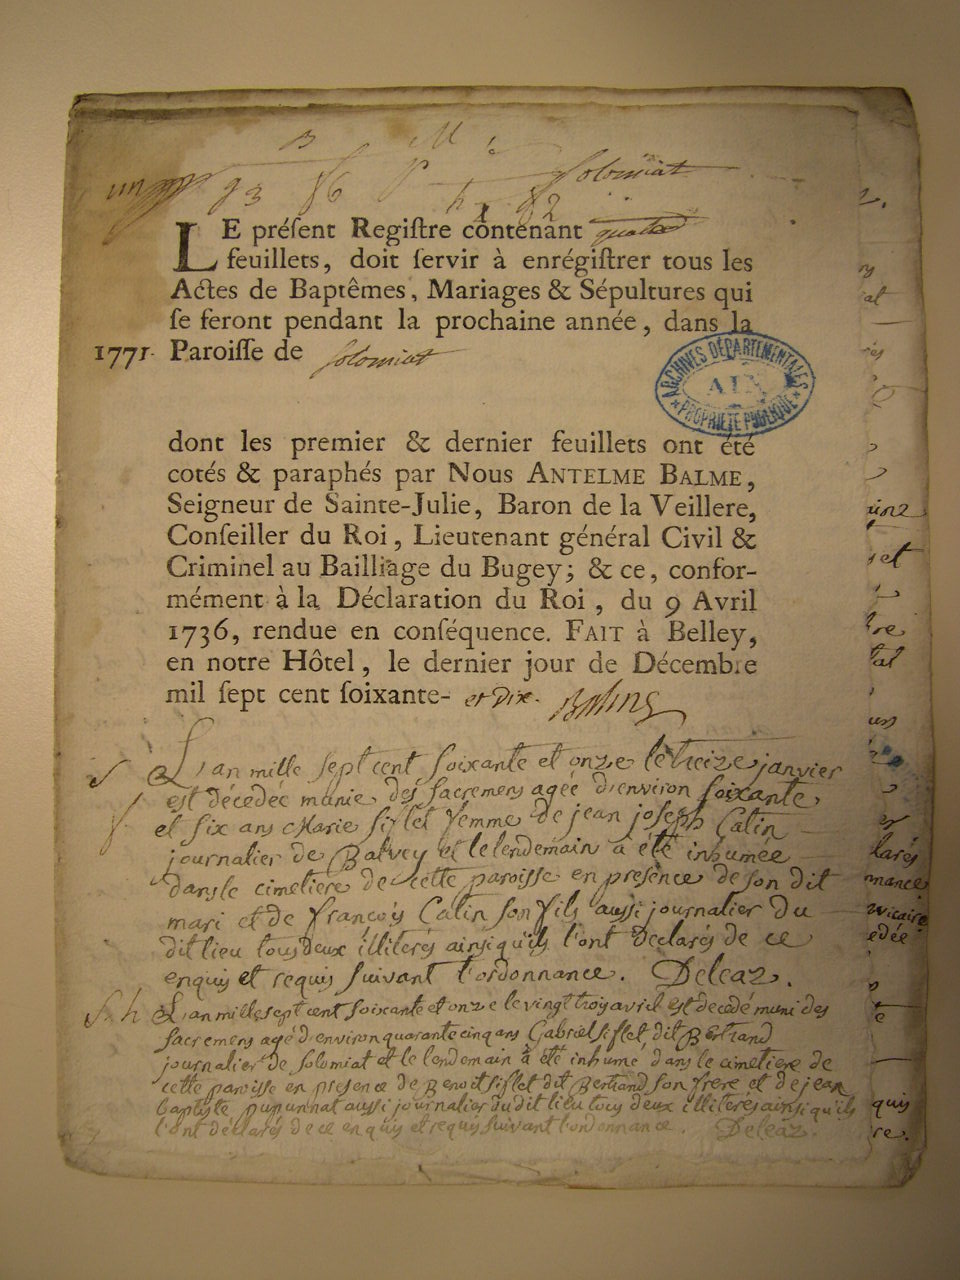 Solomiat
un
LE préſent Regiſtre contenant quatre
feuillets, doit ſervir à enrégiſtrer tous les
Actes de Baptêmes, Mariages & Sépultures qui
ſe feront pendant la prochaine année, dans la
1771. Paroiſſe de Solomiat
ARCHIVES DÉPARTEMENTALES
AIN
PROPRIÉTÉ PUBLIQUE
dont les premier & dernier feuillets ont été
cotés & paraphés par Nous ANTELME BALME,
Seigneur de Sainte-Julie, Baron de la Veillere,
Conſeiller du Roi, Lieutenant général Civil &
Criminel au Bailliage du Bugey; & ce, confor-
mément à la Déclaration du Roi, du 9 Avril
1736, rendue en conſéquence. FAIT à Belley,
en notre Hôtel, le dernier jour de Décembre
mil ſept cent ſoixante- et Dix.
S L'an mille sept cent soixante et onze le treize janvier
est décedée munie des sacremens agée d'environ soixante
et six ans Marie siflet femme de jean joseph Catin
journalier de Balvey et le lendemain a été inhumée
dans le cimetiere de cette paroisse en presence de son dit
mari et de françois Catin son fils aussi journalier du
dit lieu tous deux illiterés ainsi qu'ils l'ont declarés de ce
enquis et requis suivant l'ordonnance. Deleaz.
S. h L'an mille sept cent soixante et onze le vingt troy avril est decedé muni des
sacremens agé d'environ quarante cinq ans Gabriel siflet dit Bertrand
journalier de solomiat et le lendemain a été inhumé dans le cimetiere de
cette paroisse en presence de Benoit siflet dit Bertrand son frere et de jean
baptiste pupunnat aussi journalier du dit lieu tous deux illiterés ainsi qu'ils
l'ont declarés de ce enquis et requis suivant l'ordonnance. Deleaz.